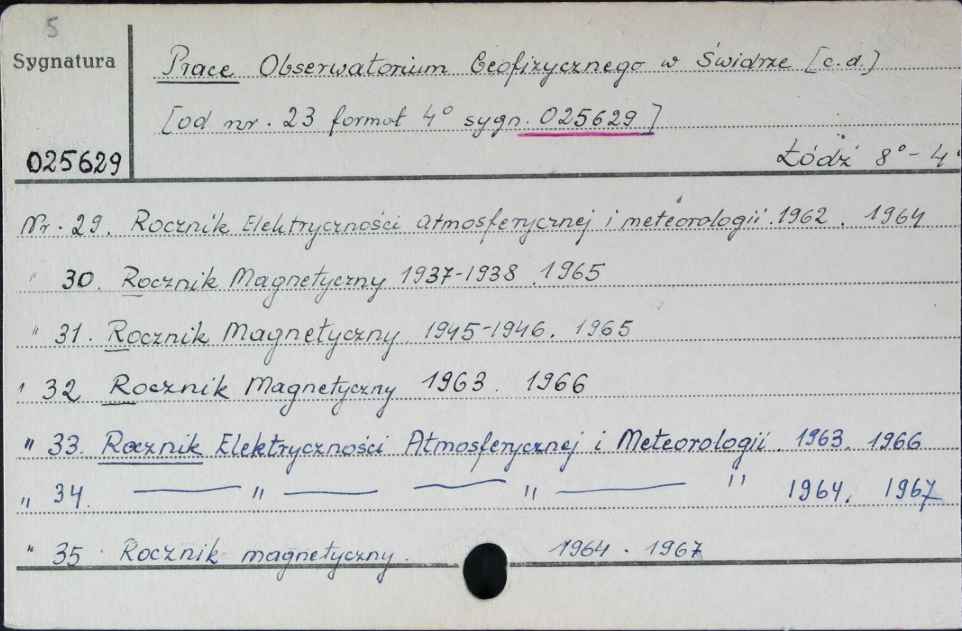 5
Sygnatura
Prace Obserwatorium Geofizycznego w Świdrze [c.d.]
[od nr. 23 format 4° sygn. 025629]
025629
Łódź 8°-4°
Nr. 29. Rocznik Elektryczności atmosferycznej i meteorologii. 1962. 1964
" 30. Rocznik Magnetyczny 1937-1938. 1965
" 31. Rocznik Magnetyczny 1945-1946. 1965
" 32 Rocznik Magnetyczny 1963. 1966
" 33. Rocznik Elektryczności Atmosferycznej i Meteorologii. 1963. 1966
" 34. — " — — " — " 1964. 1967
" 35. Rocznik magnetyczny. 1964. 1967